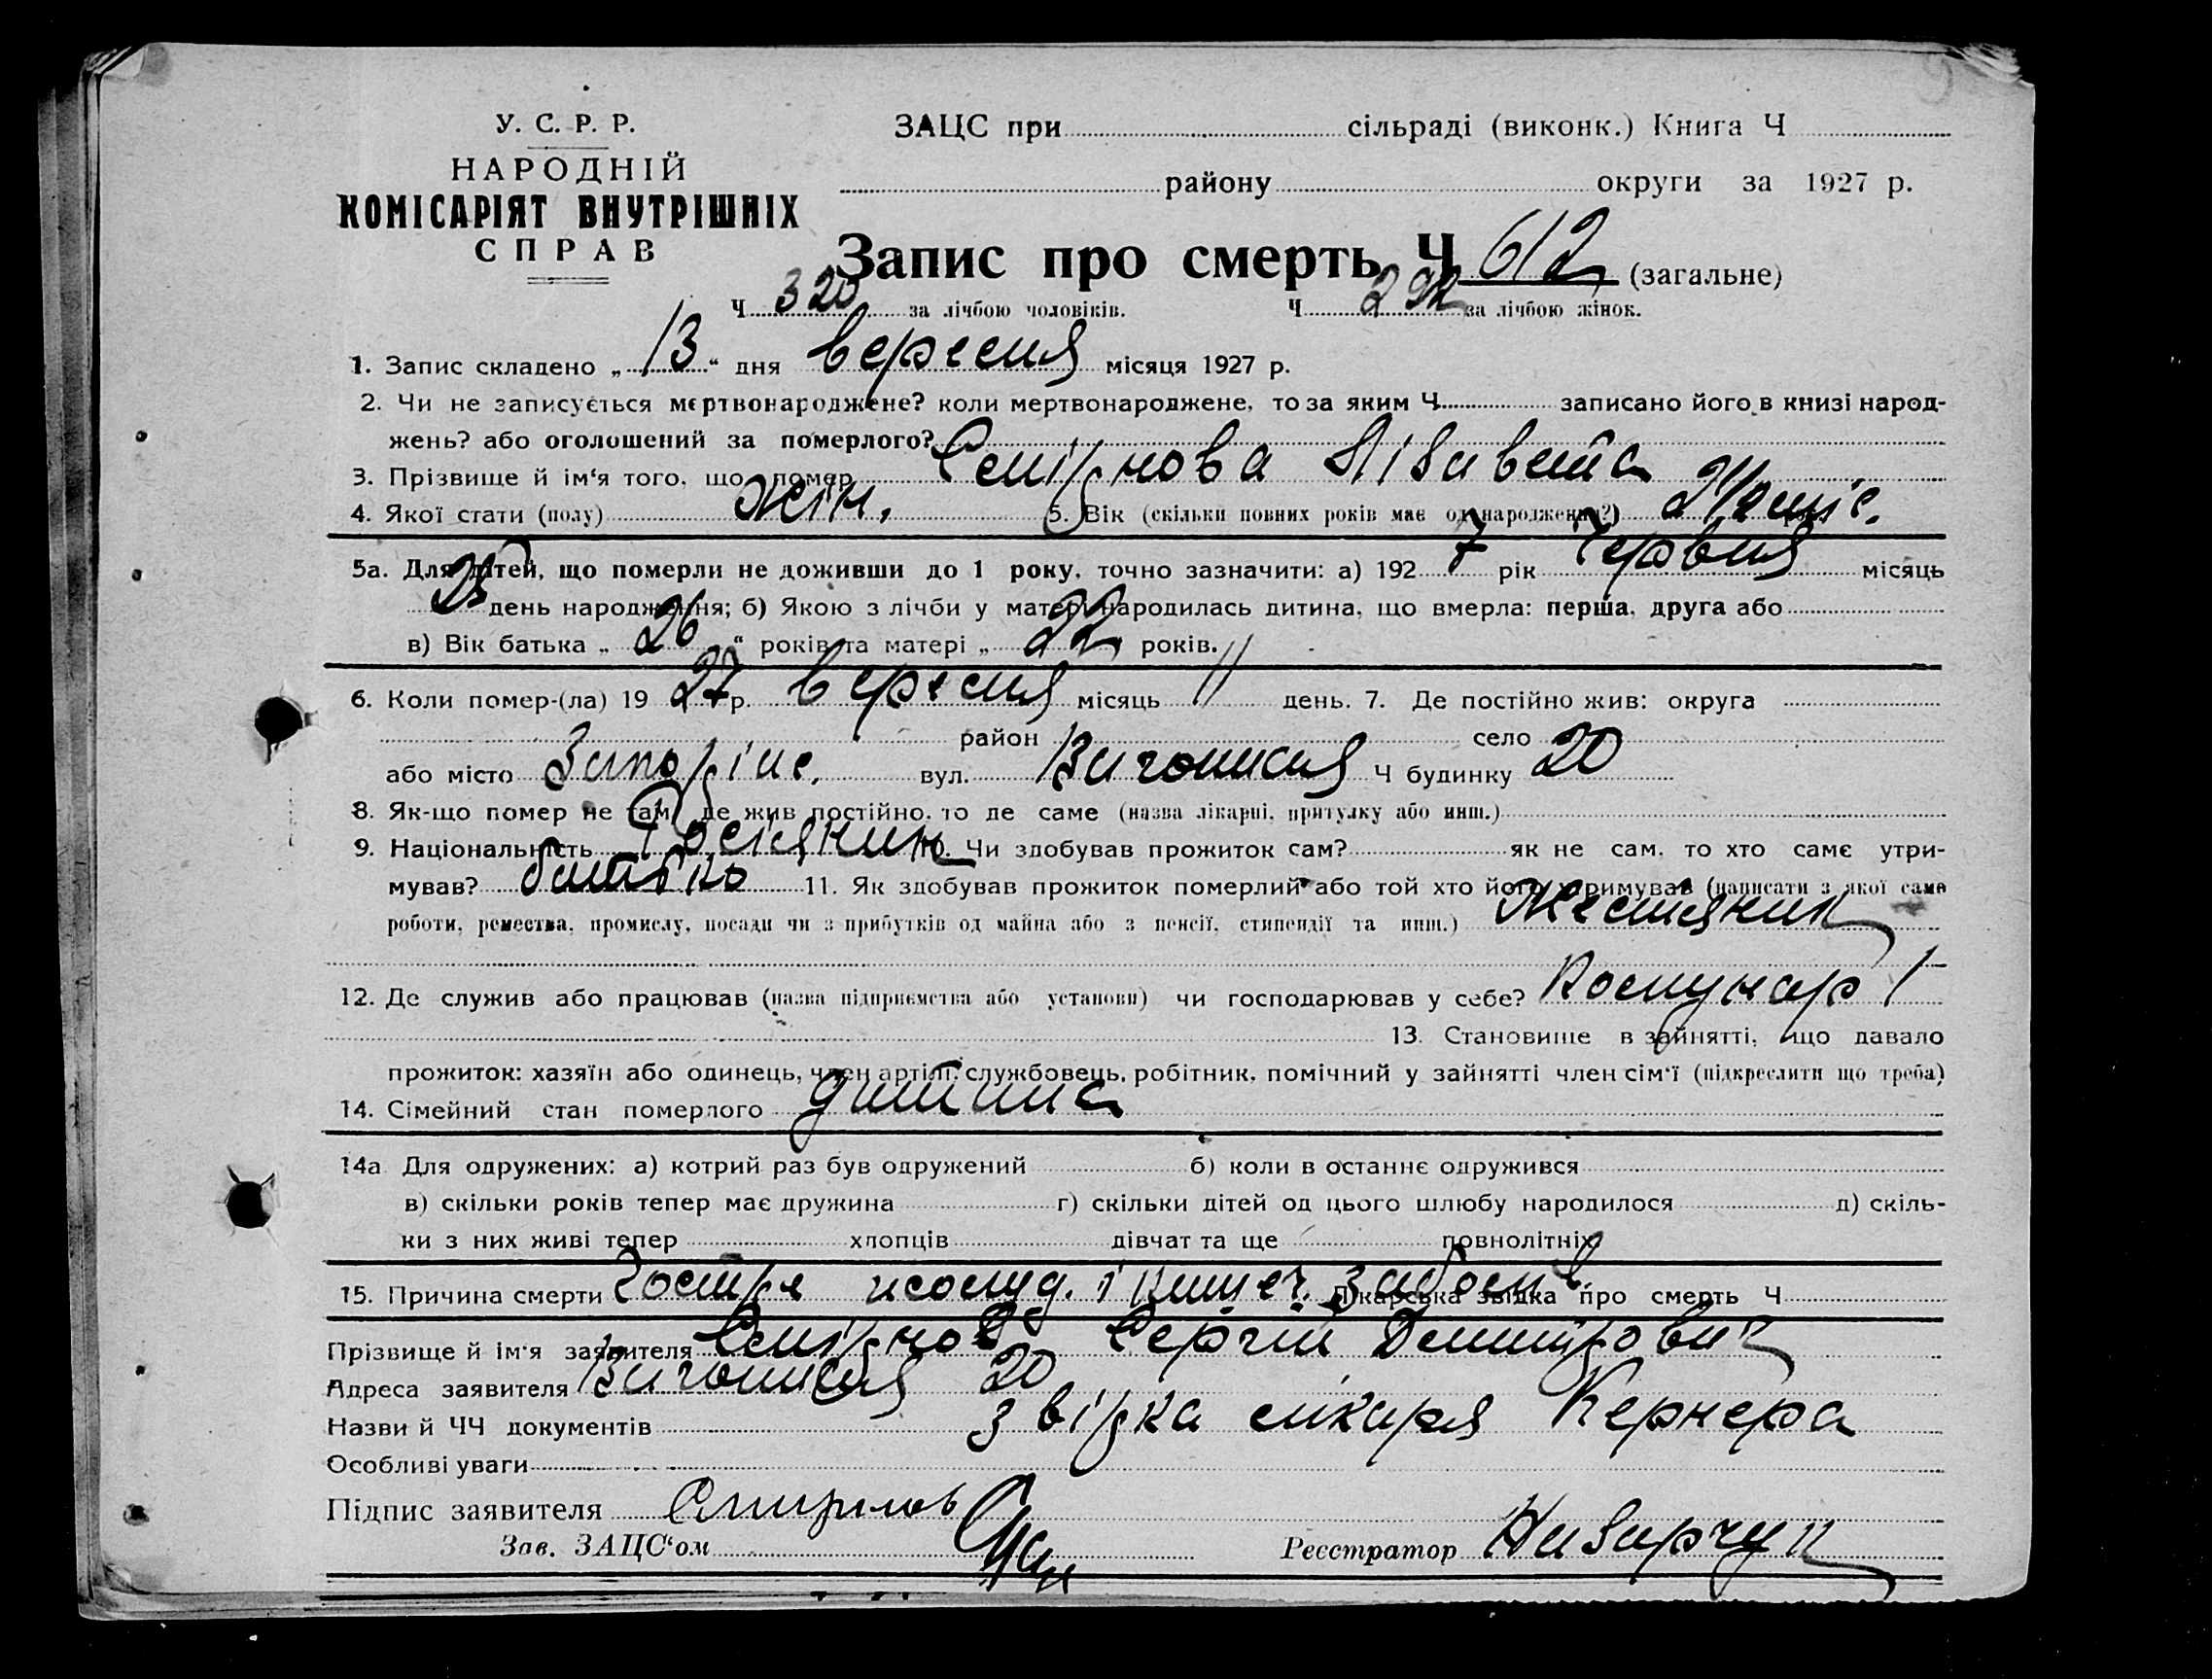 У. С. Р. Р.
НАРОДНІЙ
КОМІСАРІЯТ ВНУТРІШНІХ
СПРАВ
ЗАЦС при сільраді (виконк.) Книга Ч
району округи за 1927 р.
Запис про смерть Ч 612 (загальне)
Ч 320 за лічбою чоловіків. Ч 292 за лічбою жінок.
1. Запис складено „ 13 “ дня вересня місяця 1927 р.
2. Чи не записується мертвонароджене? коли мертвонароджене, то за яким Ч. записано його в книзі народ-
жень? або оголошений за померлого?
3. Прізвище й ім‘я того, що помер Смірнова Лізавета
4. Якої стати (полу) жін. 5. Вік (скільки повних років має од народження?) 2½ міс.
5а. Для дітей, що померли не доживши до 1 року, точно зазначити: а) 192 7 рік Червня місяць
день народження; б) Якою з лічби у матері народилась дитина, що вмерла: перша, друга або
в) Вік батька „ 26 “ років та матері „ 22 років.
6. Коли помер-(ла) 19 27 р. вересня місяць 11 день. 7. Де постійно жив: округа
район село
або місто Запоріжс. вул. Ч будинку 20
8. Як-що помер не там, де жив постійно, то де саме (назва лікарні, притулку або инш.)
9. Національність Росіянин 10. Чи здобував прожиток сам? як не сам, то хто саме утри-
мував? батько 11. Як здобував прожиток померлий або той хто його утримував (написати з якої саме
роботи, ремества, промислу, посади чи з прибутків од майна або з пенсії, стипендії та инш.) Жестяник
12. Де служив або працював (назва підприємства або установи) чи господарював у себе? Комунар
13. Становище в зайнятті, що давало
прожиток: хазяїн або одинець, член артілі, службовець, робітник, помічний у зайнятті член сім‘ї (підкреслити що треба)
14. Сімейний стан померлого дитина
14а Для одружених: а) котрий раз був одружений б) коли в останнє одружився
в) скільки років тепер має дружина г) скільки дітей од цього шлюбу народилося д) скіль-
ки з них живі тепер хлопців дівчат та ще повнолітніх
15. Причина смерти Гостре жолуд. і кишеч. заболів. Лікарська звідка про смерть Ч
Прізвище й ім‘я заявителя Смірнов Сергій Дмитрович
Адреса заявителя 20
Назви й ЧЧ документів звідка лікаря Кернера
Особливі уваги
Підпис заявителя Смирнов
Зав. ЗАЦС‘ом
Реєстратор Назарчук